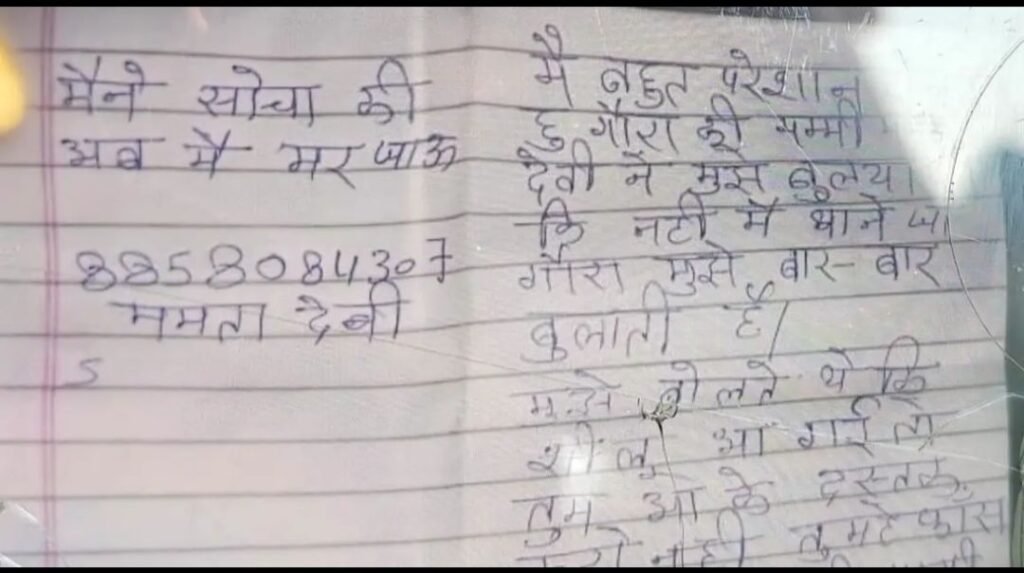 मैने सोचा की
अब मै मर जाऊ
8858084307
ममता देवी
S
मै बहुत परेशान
हु गौरा की मम्मी
देवी ने मुझे बुलया
कि नटी मै थाने जा
गौरा मुझे बार-बार
बुलाती है।
मुझे बोलते थे कि
शीलु आ गई तो
तुम आ के दस्तक
नही तुमहे